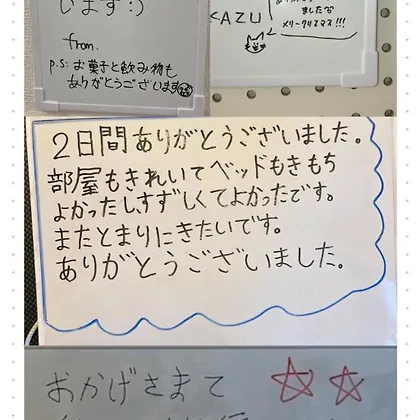 います:)
from.
P.S: お菓子と飲み物も
ありがとうございます
KAZU
ました
メリークリスマス!!!
2日間ありがとうございました。
部屋もきれいでベッドもきもち
よかったし、すずしくてよかったです。
またとまりにきたいです。
ありがとうございました。
おかげさまで